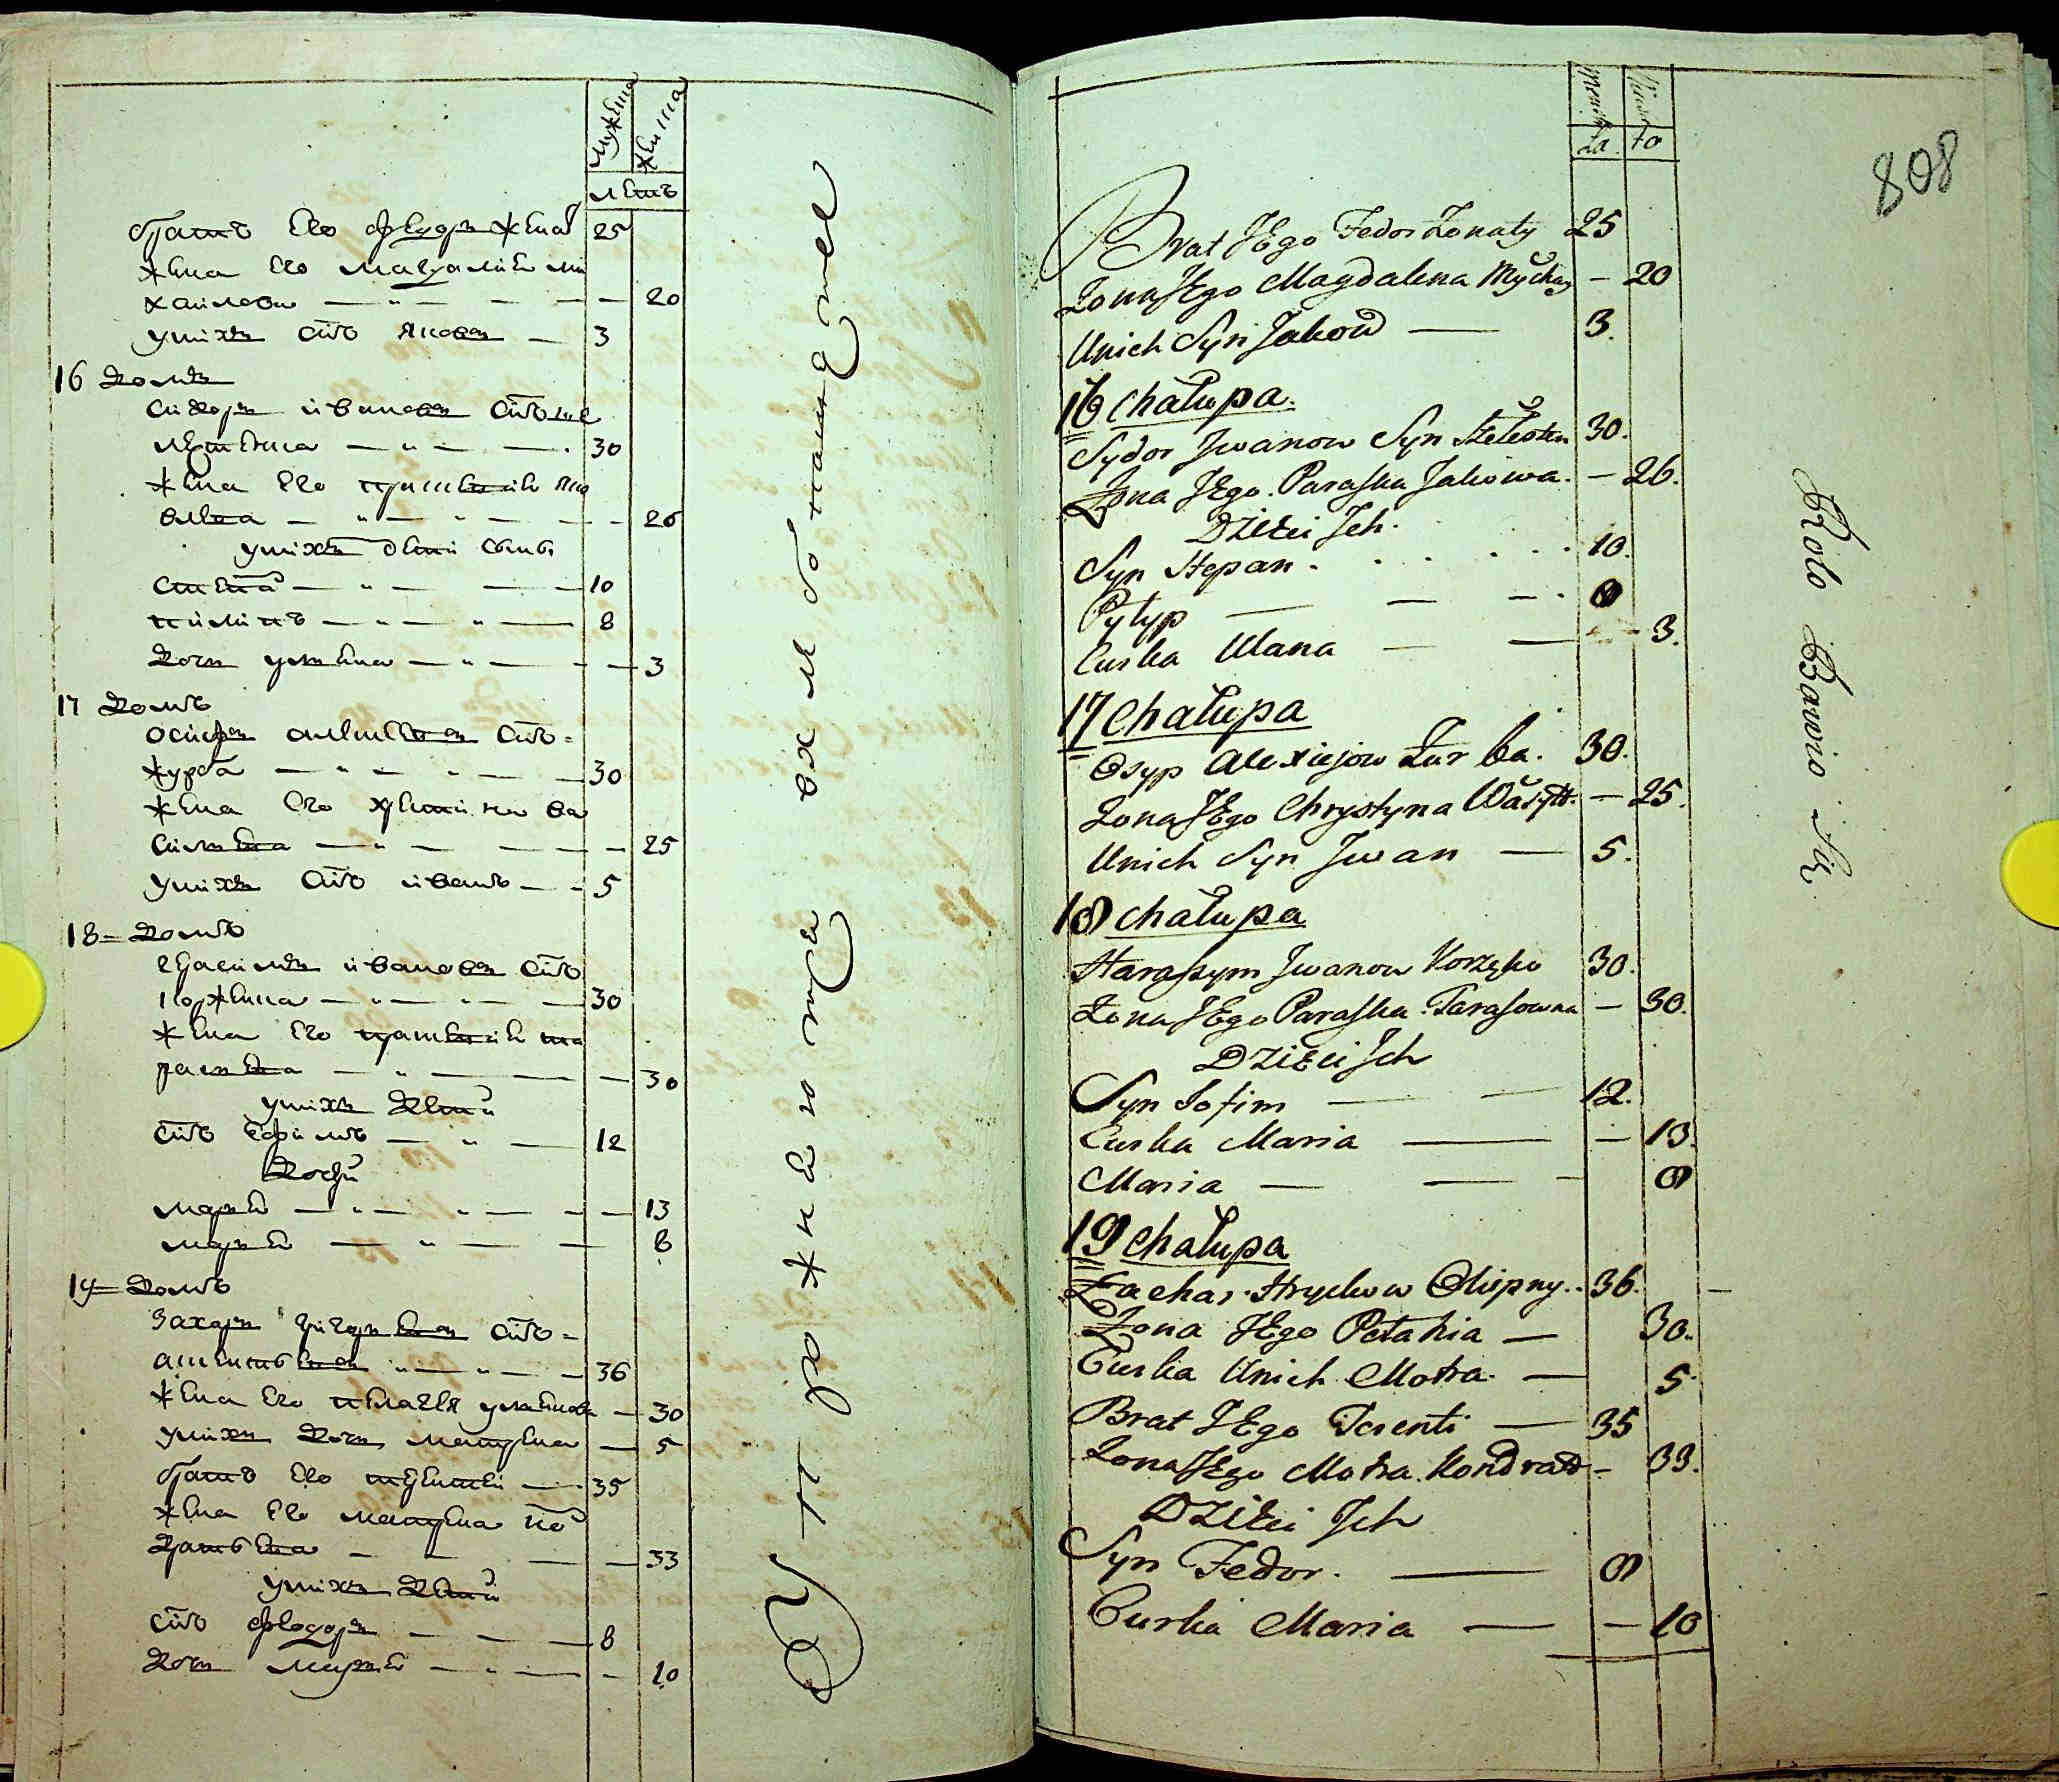 мужеска
женска
летъ
братъ его феодоръ женат 25
жена его магдалиѣ ми
хаилова — „ — — — 20
унихъ сн҃ъ яковъ — 3
16 домъ
сидоръ ивановъ сн҃ъ ше
лестена — „ — — 30
жена его праскевiѣ яко
влѣва — „ — „ — — 26
унихъ дети сынъ
степа — „ — — 10
пилипъ — „ — „ — 8
дочь улѣяна — „ — — 3
17 домъ
осифъ алексеевъ сн҃ъ =
журба — „ — „ — — 30
жена его христина ва
силѣева — „ — — — 25
унихъ сн҃ъ иванъ — — 5
18 = домъ
герасимъ ивановъ сн҃ъ
коржения — „ — „ — — 30
жена его праскевiѣ та
расѣва — „ — — — 30
унихъ дети
сн҃ъ ефимъ — „ — 12
дочери
марѣя — „ — „ — — — 13
марѣя — „ — — 8
19 = домъ
Захаръ григорѣевъ сн҃ъ =
„ — „ — — 36
жена его пелагея улянова — 30
унихъ дочь матрена — 5
братъ его терентей — 35
жена его матрена ко
дратѣва — — — — 33
унихъ дети
сн҃ъ феодоръ — — — 8
дочь марѣя — „ — — 10
У прожнающа ехм божатцтее
Męska
Żeńska
La to
808
Brat JEgo Fedor Żonaty 25
Żona JEgo Magdalena Mychay — 20
Unich Syn Jakow — 3.
16 Chałupa.
Sydor Jwanow Syn Szelesten 30.
Żona JEgo Paraska Jakowa. — 26.
Dzieci Jch.
Syn Stepan. . . . . 10.
Pyłyp — — — . 8
Curka Ulana — — — 3.
17 Chałupa
Osyp Alexiejow Żurba. 30.
Żona JEgo Chrystyna Wasyll. — 25.
Unich Syn Jwan — 5.
18 chałupa
Harasym Jwanow Korzęko 30.
Żona JEgo Paraska Tarasowna — 30.
Dzieci Jch
Syn Jofim — — 12.
Curka Maria — — 13.
Maria — — — 8
19 Chałupa
Zachar Hryckow Oliepny.. 36. —
Żona JEgo Pałahia — 30.
Curka Unich Motra. — 5.
Brat JEgo Terenti — 35
Żona JEgo Motra Kondratt — 33.
Dzieci Jch
Syn Fedor. — 8
Curka Maria — — 10
Rolo Bawio Się